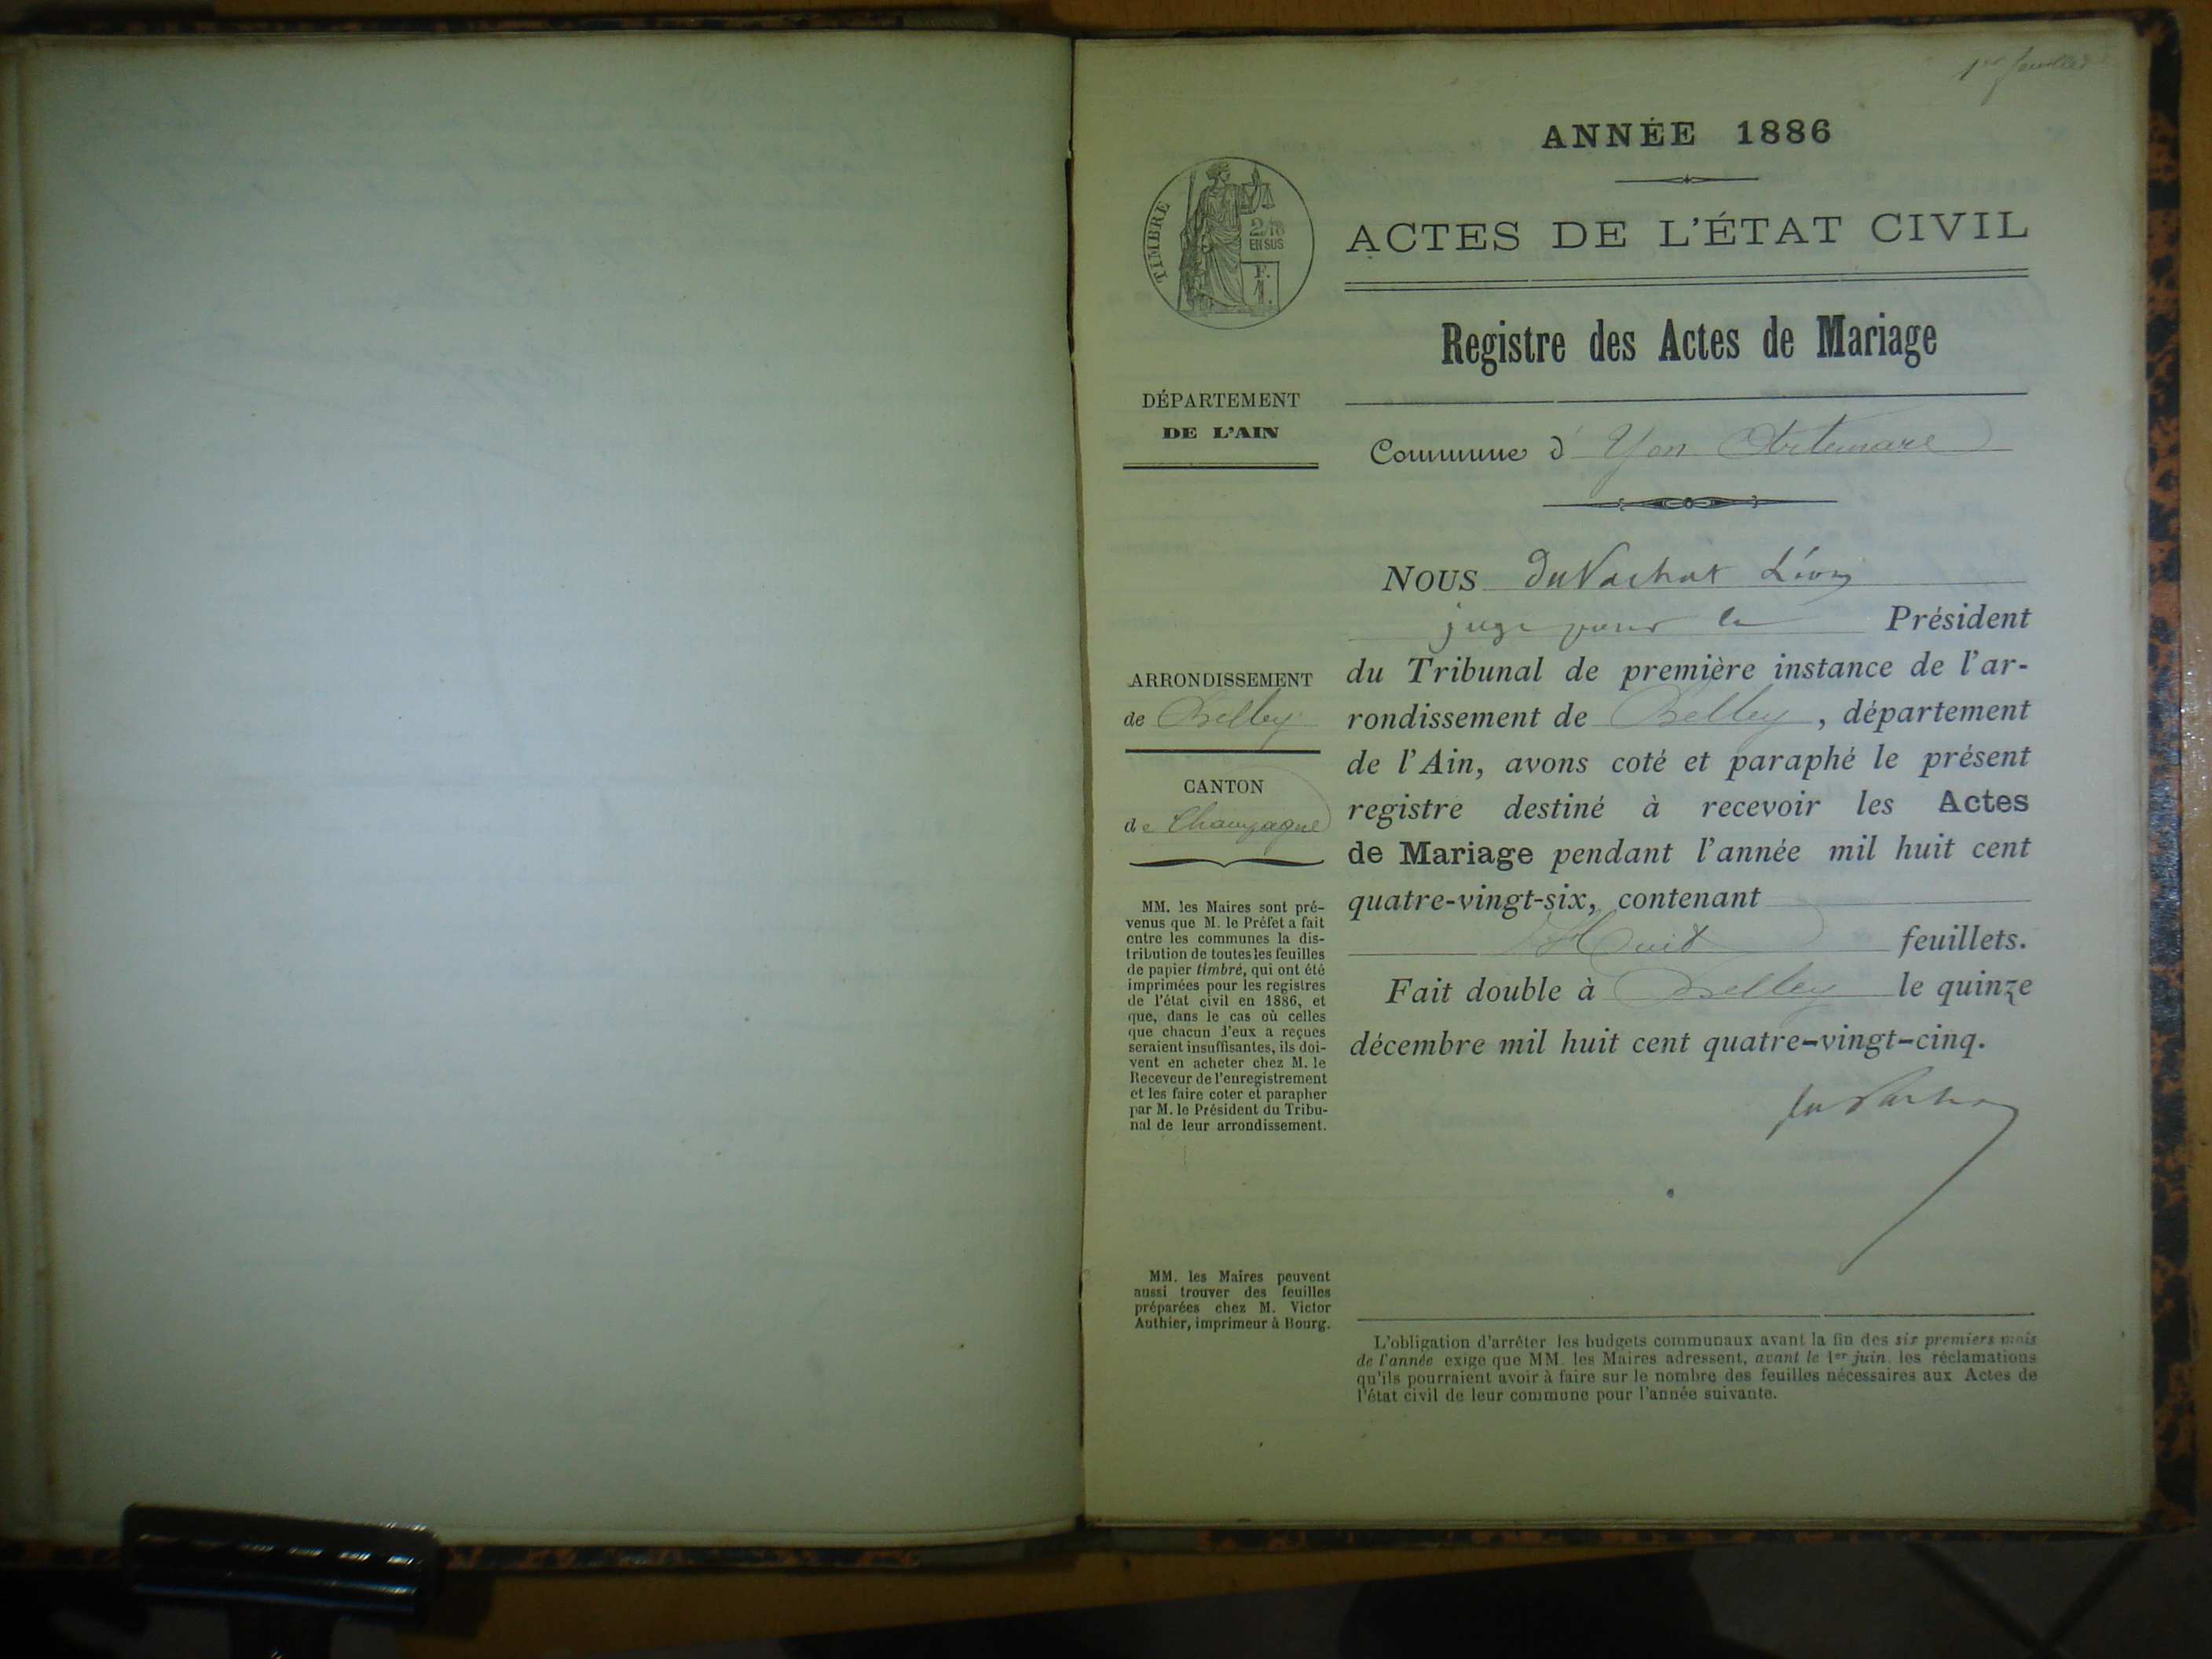 1er feuillet
ANNÉE 1886
TIMBRE
2/10
EN SUS
F.
1.
ACTES DE L'ÉTAT CIVIL
Registre des Actes de Mariage
DÉPARTEMENT
DE L'AIN
Commune d' Yon Artemare
NOUS du Vachat Léon
juge pour le Président
ARRONDISSEMENT
de Belley
CANTON
de Champagne
du Tribunal de première instance de l'ar-
rondissement de Belley, département
de l'Ain, avons coté et paraphé le présent
registre destiné à recevoir les Actes
de Mariage pendant l'année mil huit cent
quatre-vingt-six, contenant
Huit feuillets.
Fait double à Belley le quinze
décembre mil huit cent quatre-vingt-cinq.
du Vachat
MM. les Maires sont pré-
venus que M. le Préfet a fait
entre les communes la dis-
tribution de toutes les feuilles
de papier timbré, qui ont été
imprimées pour les registres
de l'état civil en 1886, et
que, dans le cas où celles
que chacun d'eux a reçues
seraient insuffisantes, ils doi-
vent en acheter chez M. le
Receveur de l'enregistrement
et les faire coter et parapher
par M. le Président du Tribu-
nal de leur arrondissement.
MM. les Maires peuvent
aussi trouver des feuilles
préparées chez M. Victor
Authier, imprimeur à Bourg.
L'obligation d'arrêter les budgets communaux avant la fin des six premiers mois
de l'année exige que MM. les Maires adressent, avant le 1er juin, les réclamations
qu'ils pourraient avoir à faire sur le nombre des feuilles nécessaires aux Actes de
l'état civil de leur commune pour l'année suivante.